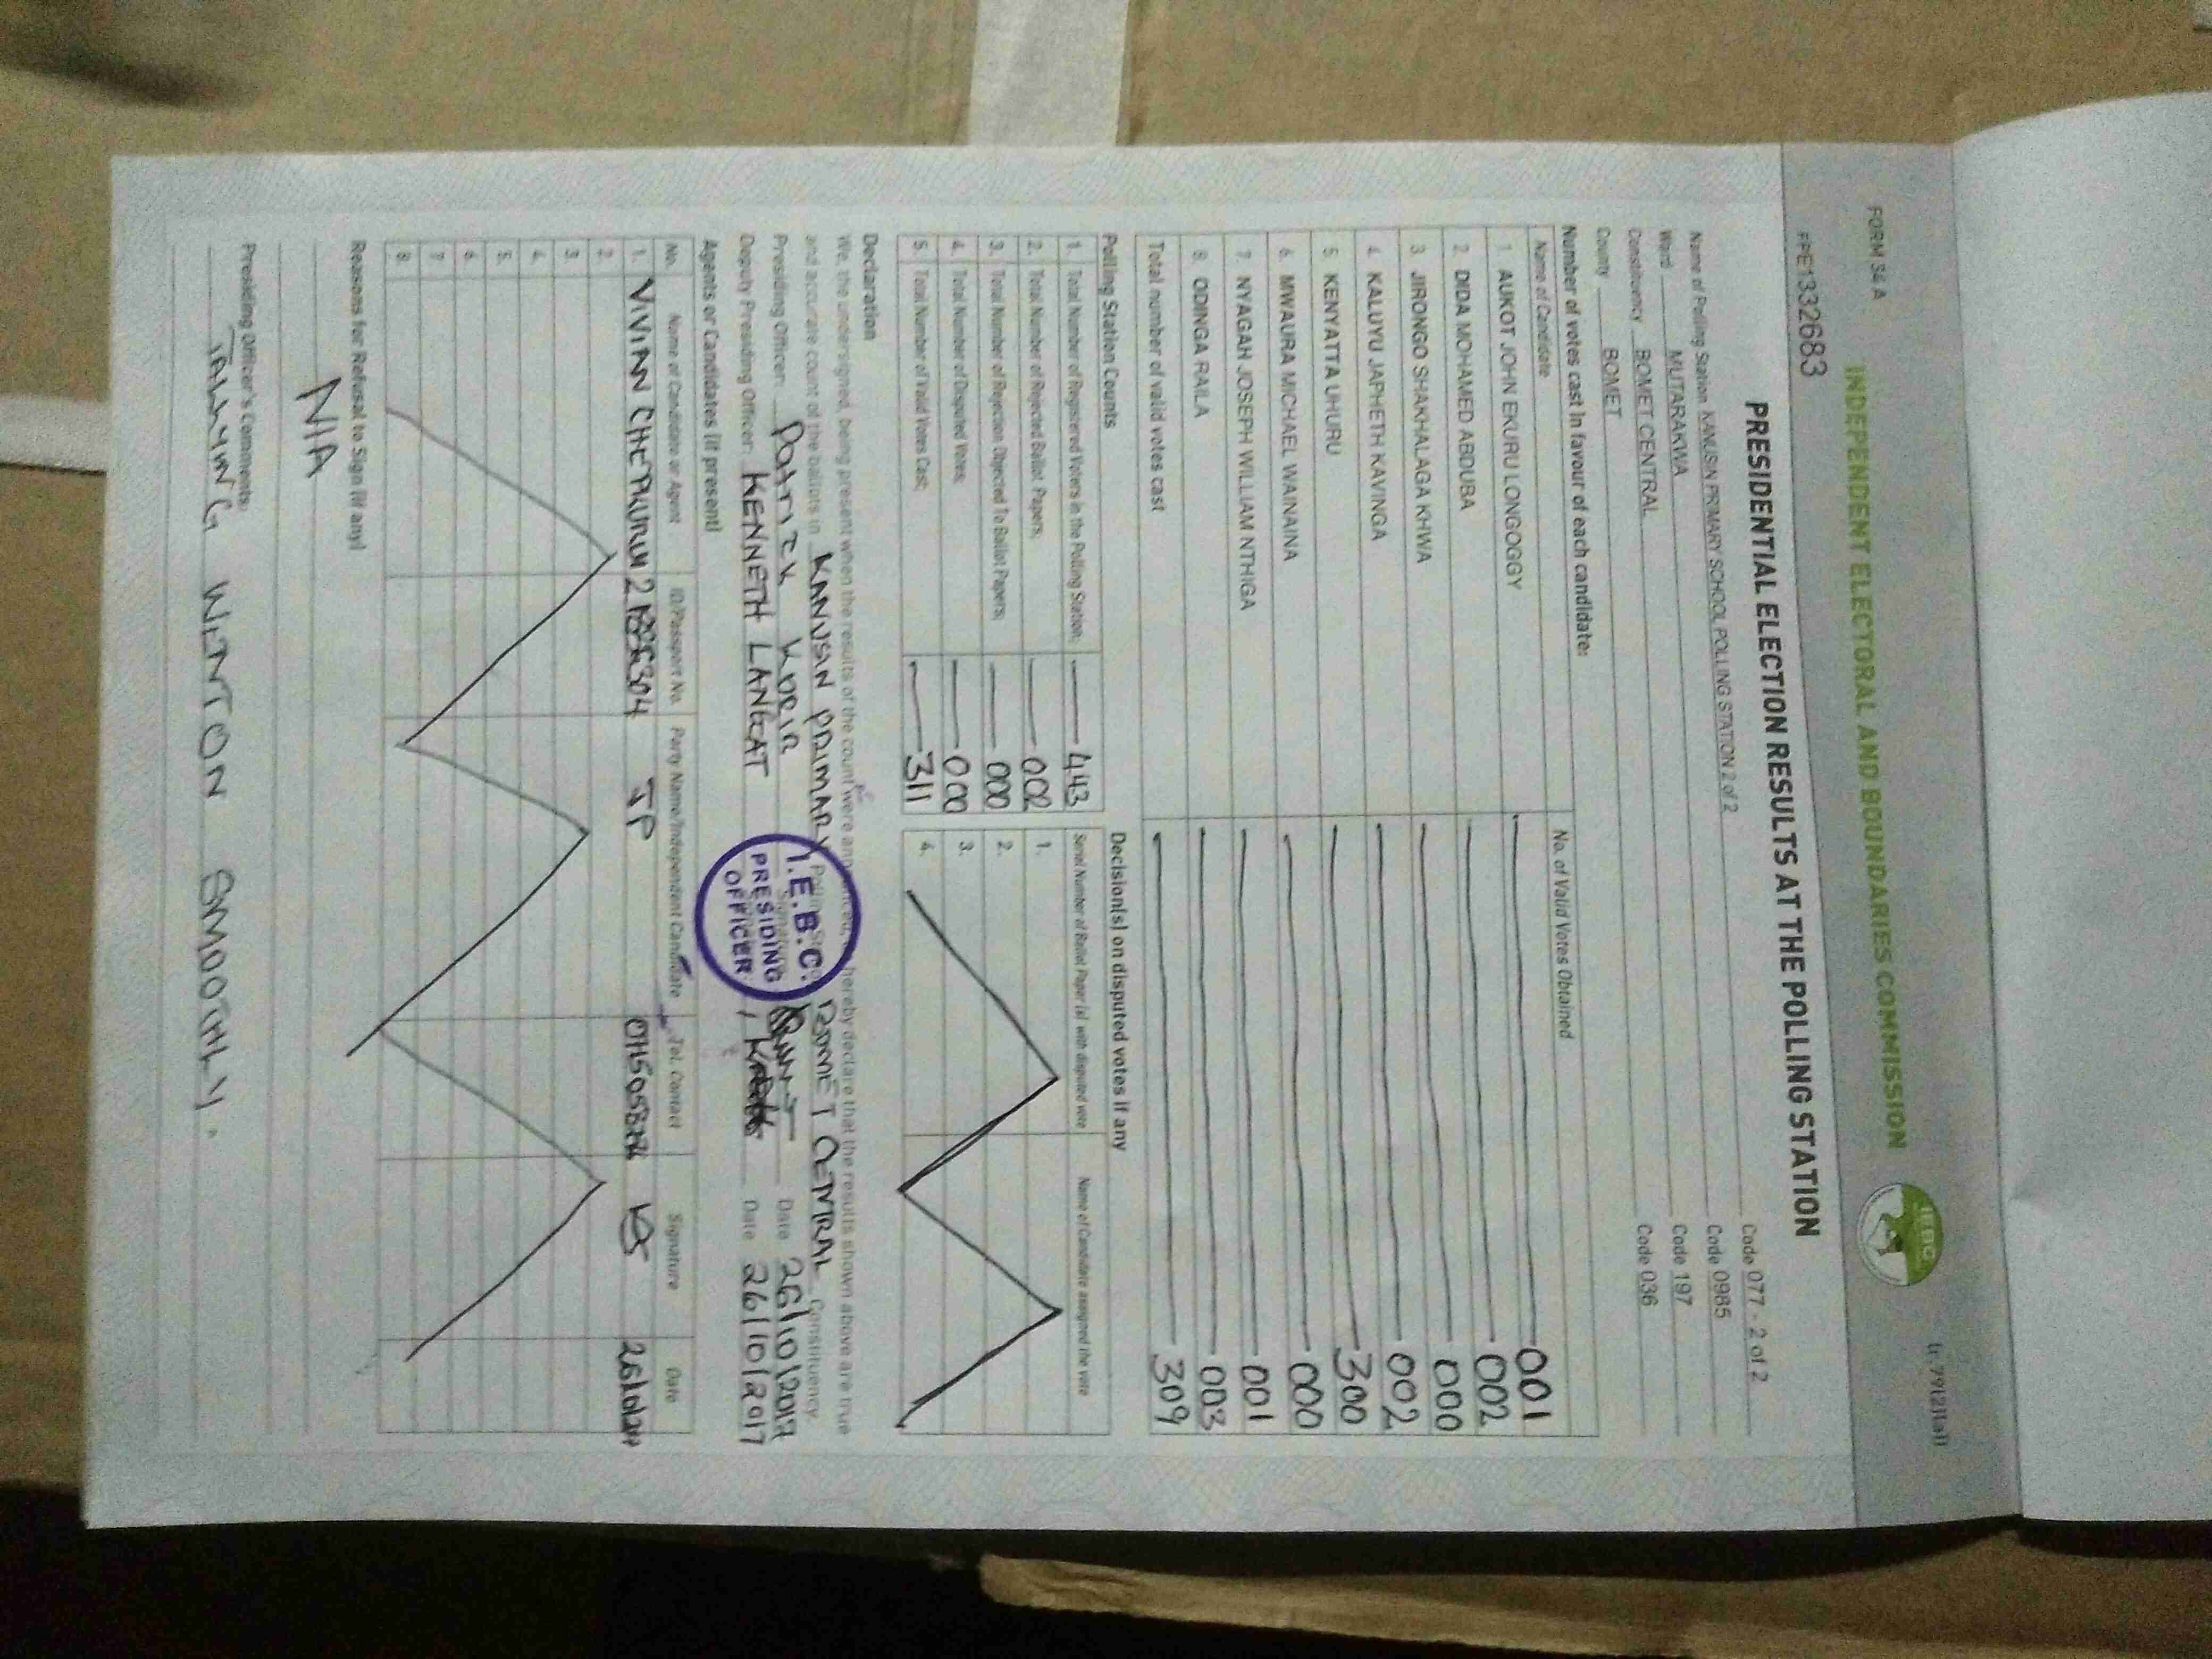 FORM 34 A
INDEPENDENT ELECTORAL AND BOUNDARIES COMMISSION
IEBC
(r. 79(2)(a))
PPE1332683
PRESIDENTIAL ELECTION RESULTS AT THE POLLING STATION
Name of Polling Station KANUSIN PRIMARY SCHOOL POLLING STATION 2 of 2 Code 077 - 2 of 2
Ward MUTARAKWA Code 0985
Constituency BOMET CENTRAL Code 197
County BOMET Code 036
Number of votes cast in favour of each candidate:
Name of Candidate No. of Valid Votes Obtained
1 AUKOT JOHN EKURU LONGOGGY 001
2 DIDA MOHAMED ABDUBA 002
3 JIRONGO SHAKHALAGA KHWA 000
4 KALUYU JAPHETH KAVINGA 002
5 KENYATTA UHURU 300
6 MWAURA MICHAEL WAINAINA 000
7 NYAGAH JOSEPH WILLIAM NTHIGA 001
8 ODINGA RAILA 003
Total number of valid votes cast 309
Polling Station Counts
1. Total Number of Registered Voters in the Polling Station; 443
2. Total Number of Rejected Ballot Papers; 002
3. Total Number of Rejection Objected To Ballot Papers; 000
4. Total Number of Disputed Votes; 000
5. Total Number of Valid Votes Cast; 311
Decision(s) on disputed votes if any
Serial Number of Ballot Paper (s) with disputed vote Name of Candidate assigned the vote
1.
2.
3.
4.
Declaration
We, the undersigned, being present when the results of the count were announced, hereby declare that the results shown above are true
and accurate count of the ballots in KANUSIN PRIMARY Polling Station BOMET CENTRAL Constituency
Presiding Officer: PATRICK KORIR Signature Date 26/10/2017
Deputy Presiding Officer: KENNETH LANGAT Date 26/10/2017
I.E.B.C.
PRESIDING
OFFICER
Agents or Candidates (if present)
No. Name of Candidate or Agent ID/Passport No. Party Name/Independent Candidate Tel. Contact Signature Date
1. VIVIAN JP
2.
3.
4.
5.
6.
7.
8.
Reasons for Refusal to Sign (if any)
N/A
Presiding Officer's Comments:
TALLYING WENT ON SMOOTHLY.